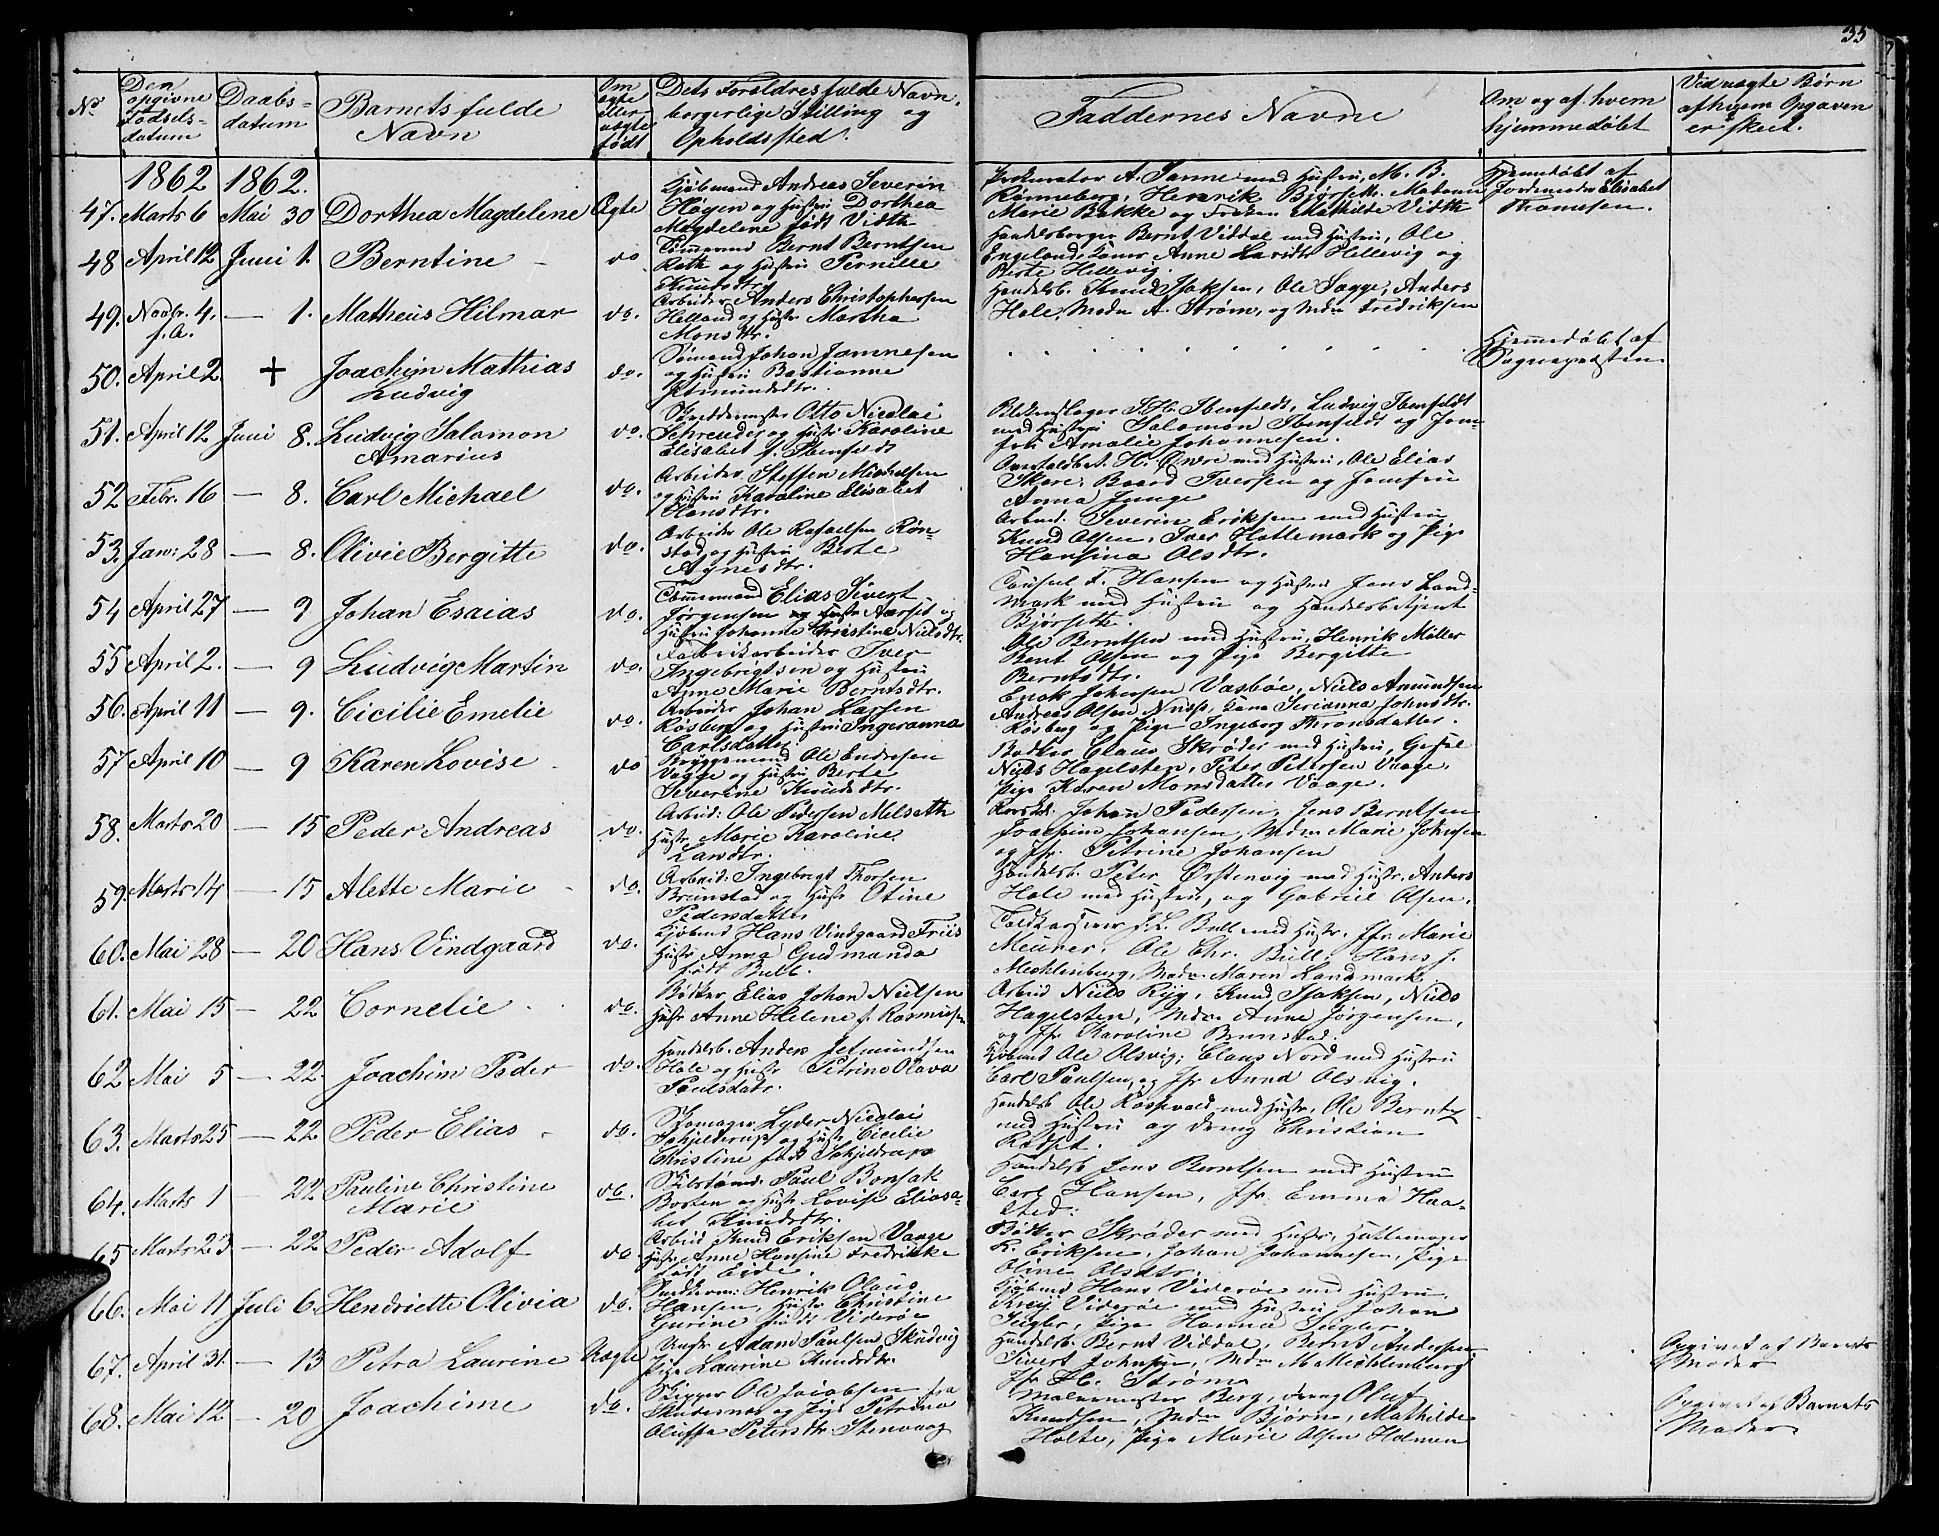 35
No
Den opgivne Fødselsdatum
Daabsdatum
Barnets fulde Navn
Om ægte eller uægte født
Dets Forældres fulde Navn, borgerlige Stilling og Opholdssted.
Faddernes Navne
Om og af hvem hjemmedøbt
Ved uægte Børn af hvem Opgaven er skeet.
1862 1862.
47. Marts 6 Mai 30 Dorthea Magdelene Ægte
Kjøbmand Andreas Severin
Høgen og Hustru Dorthea
Magdelene født Vidth
Prokurator A. Sanne med Hustru, M. B.
Rønneberg, Henrik Bjørset. Madam
Marie Bakke og Frøken Mathilde Vidth
Hjemmedøbt af
Jordemoder Elisabet
Thomesen.
48 April 12 Juni 1. Berntine do
Tømmermand Bernt Berntsen
og Hustru Pernille
Knudsdtr.
Handelsborger Bernt Viddal med Hustru, Ole
Engeland, Anne Hellevig og
Berte Hellevig.
49. Novbr. 4. f.A. — 1. Matheus Hilmar do.
Arbeider Anders Christophersen
Helland og Hustr. Martha
Monsdtr.
Handelsb. Knud Isaksen, Ole Sagge, Anders
Hole, Madm A. Strøm, og Madm Fredriksen
50. April 2 + Joachim Mathias
Ludvig do.
Sømand Johan Jamnesen
og Hustru Bastianne
Hjemmedøbt af
Sognepræsten.
51. April 12 Juni 8. Ludvig Salomon
Amarius do.
Skræddermester Otto Nicolai
Schreuder og Hustr Karoline
Elisabet f. Ibenfeldt
Blikkenslager Ibenfeldt, Ludvig Ibenfeldt
med Hustru Salomon Ibenfeldt og Jomfru
Amalie Johannesen.
52 Febr. 16 — 8. Carl Michael do.
Arbeider Steffen Michelsen
og Hustru Karoline Elisabet
Hansdtr.
H. Owre med Hustru, Ole Elias
Skare, Baard Iversen og Jomfru
Anna Junge
53. Jan: 28 — 8. Olivie Bergitte do.
Arbeider Ole Rafaelsen Rønstad
og Hustru Berte
Agnesdtr.
Arbeid. Severin Eriksen med Hustru
Knud Olsen, Iver Hattemark og Pige
Hansina Olsdtr.
54 April 27 — 9 Johan Esaias do.
Tømmermand Elias Sivert
Jørgensen Aarset og
Hustru Johanne Christine Nielsdtr.
F. Hansen og Hustru Jens Landmark
med Hustru og Handelsbetjent
Bjørsette.
55 April 2. — 9 Ludvig Martin do.
Fabrikarbeider Iver
Ingebrigtsen og Hustru
Anne Marie Berntsdtr.
Ole Berntsen med Hustru, Henrik Møller
Bent Olsen og Pige Bergitte
Berntsdtr.
56. April 11 — 9. Cicilie Emelie do.
Arbeider Johan Larsen
Røsberg og Hustru Ingeranna
Carlsdatter
Enok Johnsen Vasbøe, Niels Amundsen
Andreas Olsen, Kone Serianna Johnsdtr.
Røsberg og Pige Ingeborg Thronsdatter.
57 April 10 — 9 Karen Lovise do
Bryggemand Ole Endresen
Vagge og Hustru Berte
Severine Knudsdtr.
Bødker Claus Skrøder med Hustru, Gesel
Niels Hagelsten, Peter Petersen Vaage,
Pige Karen Monsdatter Vaage.
58. Marts 20 — 15 Peder Andreas do.
Arbeid: Ole Pedersen Melseth
Hustr. Marie Karoline
Larsdtr.
Johan Pedersen, Jens Berntsen
Joachim Johansen, Madm Marie Johnsen
og Jfr. Petrine Johansen
59. Marts 14 — 15 Alette Marie do.
Arbeid: Ingebregt Thorsen
Brunstad og Hustr Otine
Pedersdatter
Handelsb. Peter Ørstenvig med Hustr. Anders
Hole med Hustru, og Gabriel Olsen.
60. Mai 28 — 20 Hans Vindgaard do.
Kjøbmd Hans Vindgaard Friis
Hustr Anna Gudmanda
født Bull.
Toldkasserer J. L. Bull med Hustr. Jfr Marie
Meurer. Ole Chr. Bull. Hans J.
Mechlenburg, Madm Maren Landmark.
61. Mai 15 — 22 Cornelie do.
Bødker Elias Johan Nielsen
Hustr Anne Helene f. Rasmusen
Arbeid Niels Ryg, Knud Isaksen, Niels
Hagelsten, Madm Anne Jørgensen,
og Jfr Karoline Brunstad.
62 Mai 5 — 22. Joachim Peder do.
Handelsb. Anders Jetmundsen
Hole og Hustr Petrine Olava
Paulsdatr.
Kjøbmd Ole Olsvig, Claus Nord med Hustru
Carl Paulsen, og Jfr Anna Olsvig.
63. Marts 25 — 22 Peder Elias do.
Skomager Lyder Nicolai
Schjelderup og Hustr. Cicilie
Christine født Schjeldrup
Handelsb Ole Roswald med Hustr, Ole Berntz
med Hustru og dreng Christian
Rødset.
64. Marts 1 22 Pauline Christine
Marie do.
Paul Bonsak
Bosten og Hustr Lovise Eliasabet
Knudsdtr.
Handelsb Jens Berntsen med Hustru
Carl Hansen, Jfr. Emma Haasted.
65 Marts 23 — 22 Peder Adolf do
Arbeid Knud Eriksen Vaage
Hustr. Anne Hansine Fredrikke
født Eide.
Bødker Skrøder med Hustr, Hattemager
K. Eriksen, Johan Johannesen, Pige
Oline Olsdtr.
66. Mai 11 Juli 6. Henriette Olivia do.
Henrik Olaus
Hansen, Hustr Christine
Gurine født Viderøe
Kjøbmd Hans Viderøe med Hustru,
Viderøe med Hustru Johan
Sugler, Pige Hanna Sugler.
67. April 31. — 13 Petra Laurine Uægte
Ungkr Adam Paulsen Skudvig
Pige Laurine Knudsdtr.
Handelsb. Bernt Viddal, Bernt Andersen
Sivert Johnsen, Mdm M. Mechlenburg
Jfr H. Strøm
Opgivet af Barnets
Moder
68. Mai 12 — 20 Joachime do.
Skipper Ole Jacobsen fra
Skudesnæs og Pige Petrina
Oluffa Petersdtr Stenvaag
Malermester Berg, dreng Oluf
Knudsen, Mdm Bjørn, Mathilde
Holte, Pige Marie Olsen Holmen
Opgivet af Barnets
Moder